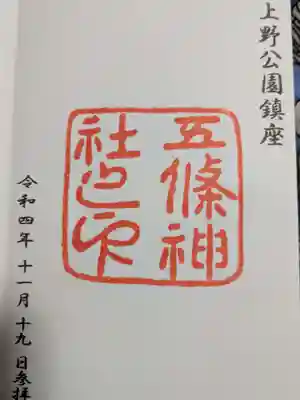 上野公園鎮座
五條神
社之印
令和四年 十一月 十九 日参拝